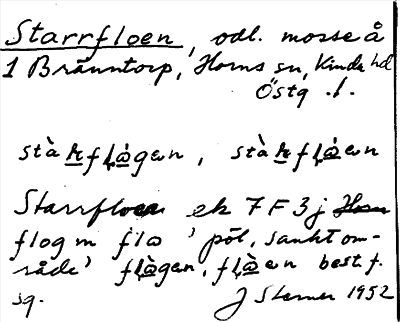 Starrfloen, odl. mosse å
1 Bränntorp, Horns sn, Kinda hd
Östg .l.
stàrflågen, stàrflåen
Starrfloen ek 7 F 3 j
flog m flo 'pöl, sankt om-
råde' flàgen, flåen best f.
sg. J Sterner 1952